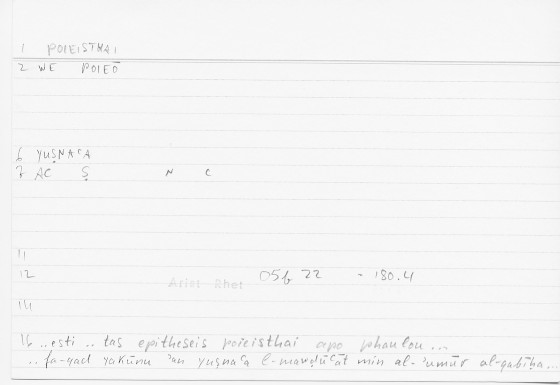 1 POIEISTHAI
2 WE POIEŌ
6 YUṢNAʿA
7 AC Ṣ N C
11
12 Arist Rhet 05b 22 - 180.4
14
16 ..esti .. tas epitheseis poieisthai apo phaulou ...
.. fa-qad yakūnu ʾan yuṣnaʿa l-mawḍūʿāt min al-ʾumūr al-qabīḥa..